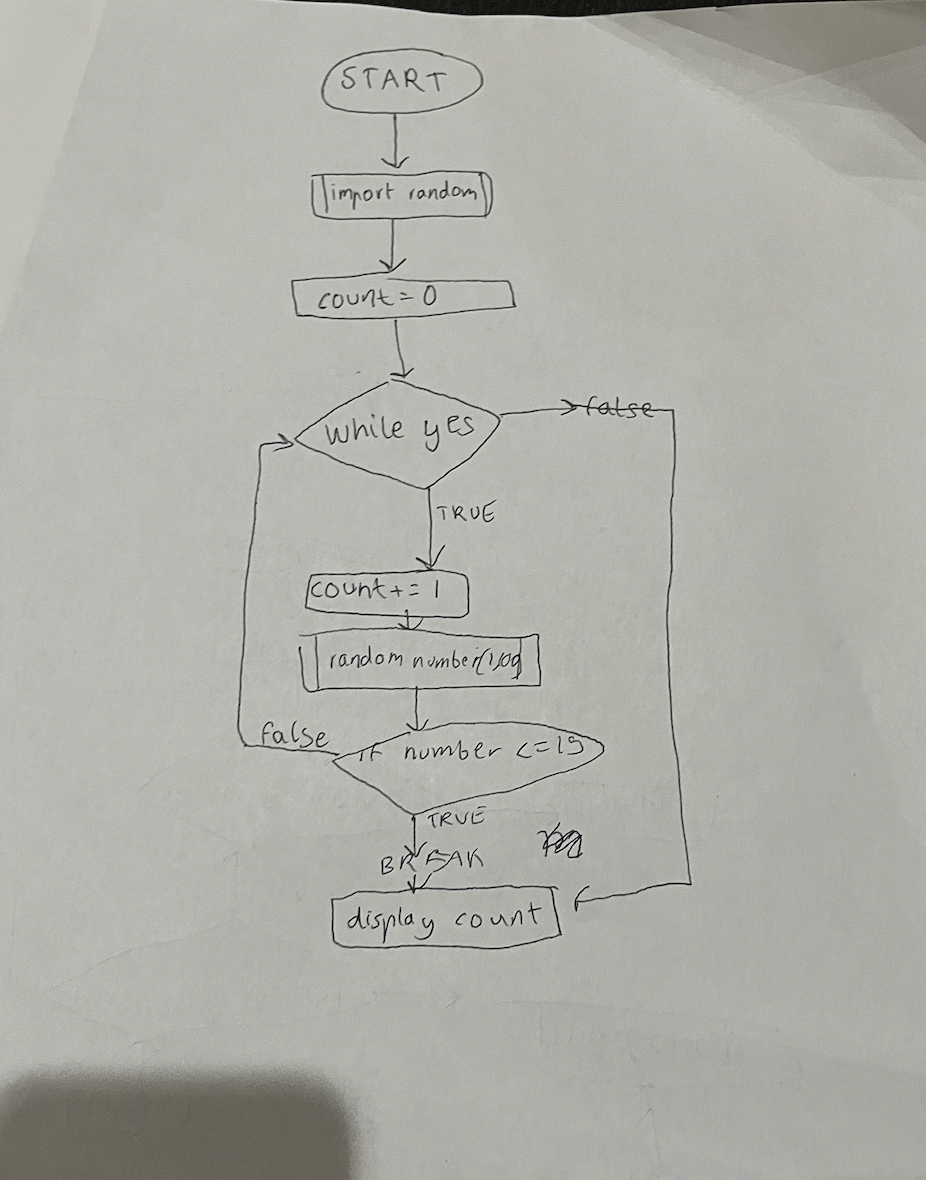 START
import random
count = 0
while yes
false
TRUE
count += 1
random number
false
if number <= 19
TRUE
BREAK
display count